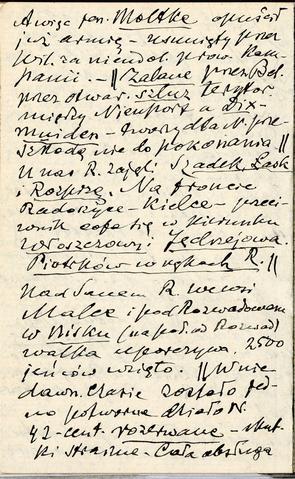 A więc gen. Moltke opuścił
już armię – usunięty przez
Wil. za niedoł. prow. kam-
panii. – || Zalane przez Bel.
przez otwar. szluz terytor.
między Nieuport a Dix-
muiden – tworzy dla N. prze-
szkodę nie do pokonania ||
U nas R. zajęli Szadek, Łask
i Rozprzę. Na froncie
Radoszyce – Kielce – przeci-
wnik cofa się w kierunku
Włoszczowej i Jędrzejowa.
Piotrków w rękach R. ||
Nad Sanem R. we wsi
Malce i pod Rozwadowem
w Nisku (na poł. od Rozwad)
walka uporczywa. 2500
jeńców wzięto. || W nie
dawn. czasie zostało jed-
no potworne działo N.
42-cent. rozerwane – skut-
ki straszne – Cała obsługa